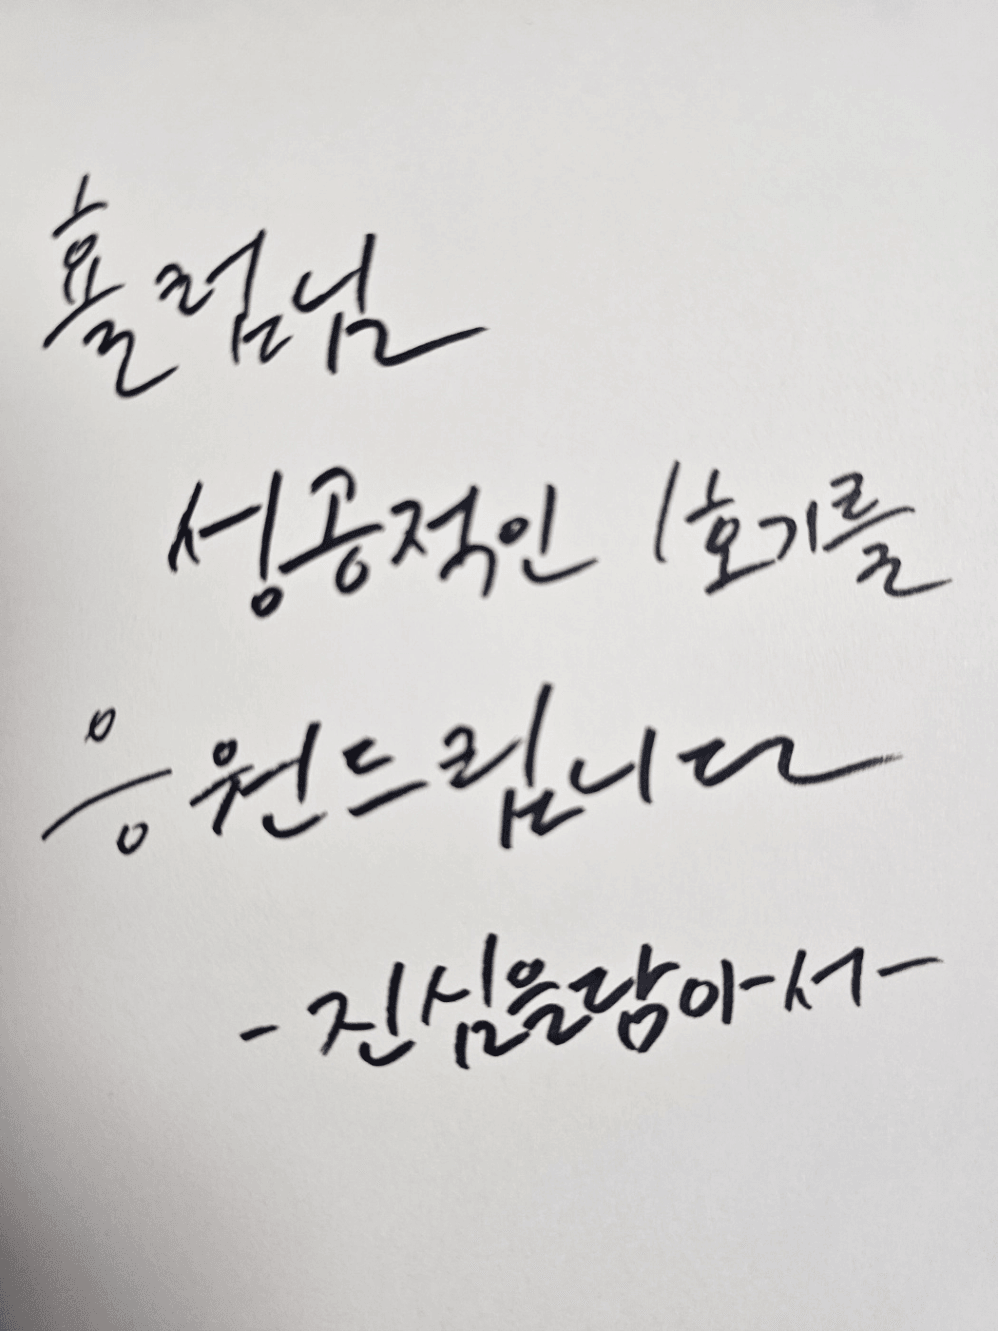 홀럽님
성공적인 1호기를
응원드립니다
-진심을담아서-